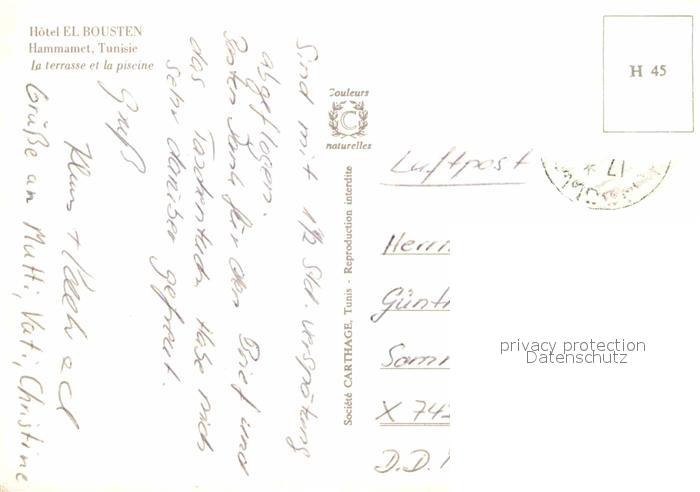 Hôtel EL BOUSTEN
Hammamet, Tunisie
la terrasse et la piscine
Couleurs
C
naturelles
H 45
Société CARTHAGE, Tunis - Reproduction interdite
Sind mit 1½ Std. Verspätung
abgeflogen.
Besten Dank für den Brief und
das Taschentuch. Habe mich
sehr darüber gefreut.
Gruß
Klaus +
Grüße an Mutti, Vati, Christine
Luftpost
Herrn
Günt
X 74
D.D.
privacy protection
Datenschutz